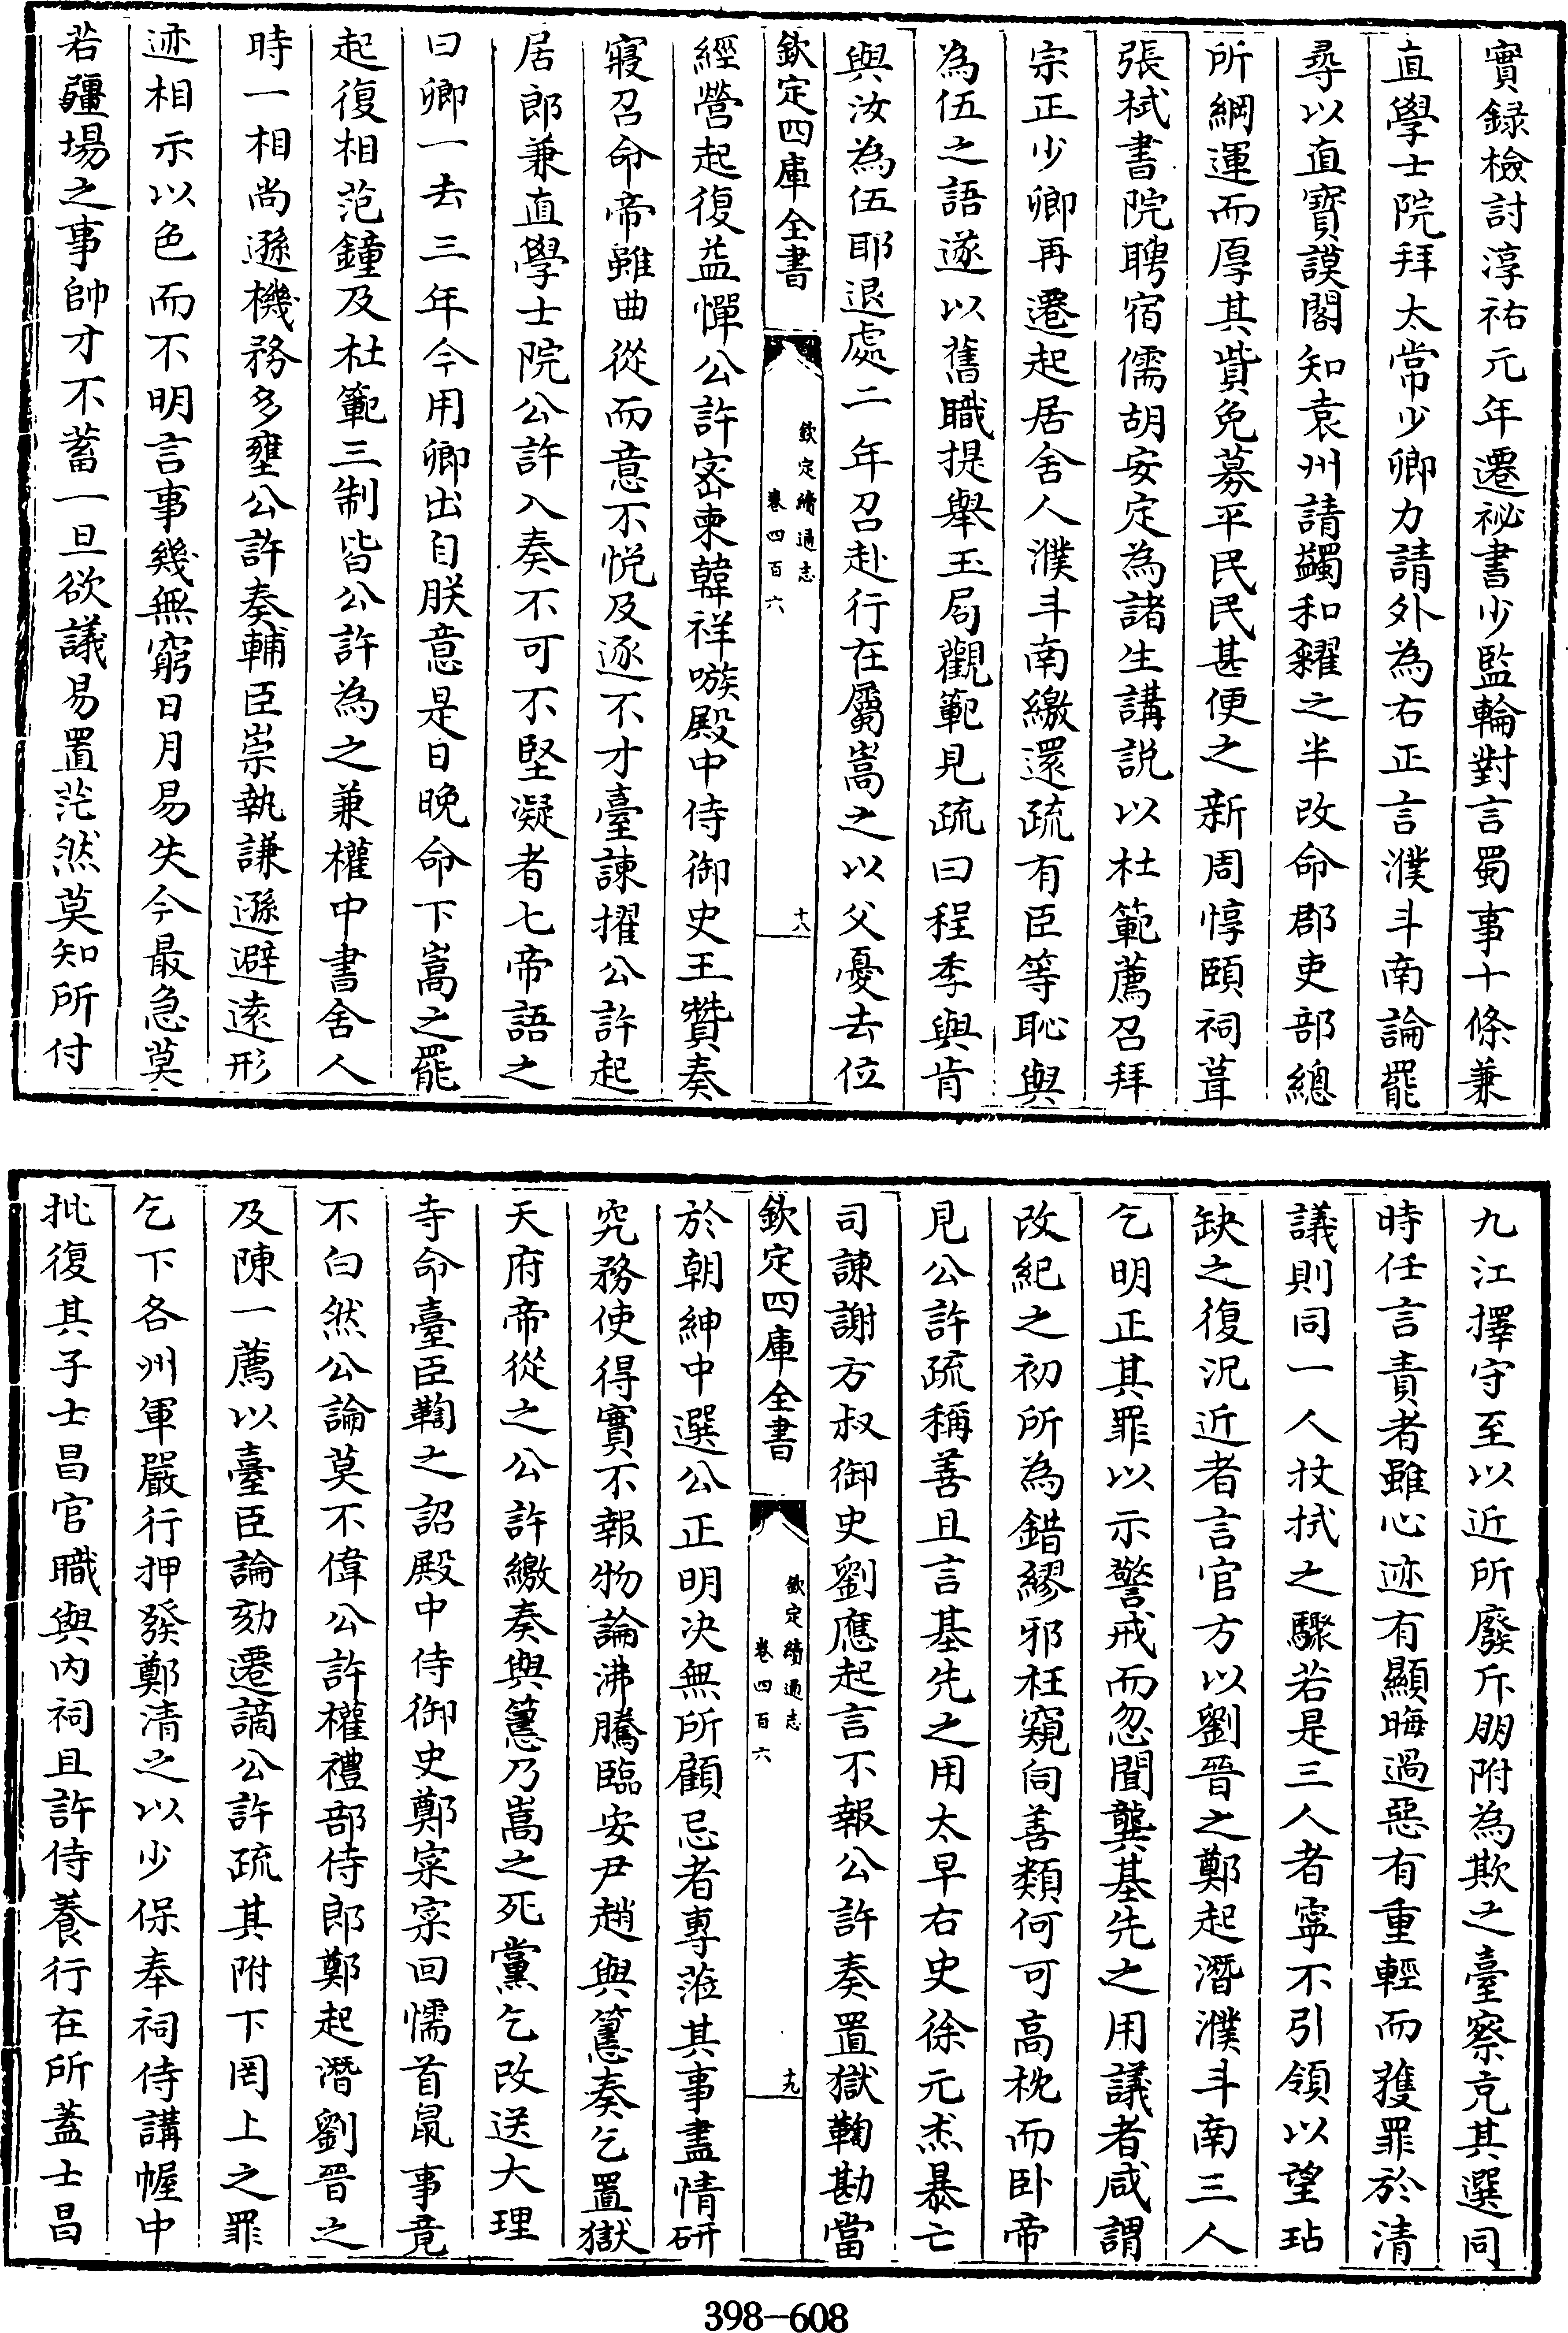 實録檢討淳祐元年遷祕書少監輪對言蜀事十條兼
直學士院拜太常少卿力請外為右正言濮斗南論罷
尋以直寳謨閣知袁州請蠲和糴之半改命郡吏部總
所綱運而厚其貲免募平民民甚便之新周惇頤祠葺
張栻書院聘宿儒胡安定為諸生講説以杜範薦召拜
宗正少卿再遷起居舍人濮斗南繳還疏有臣等恥與
為伍之語遂以舊職提舉玉局觀範見疏曰程季與肯
與汝為伍耶退處二年召赴行在屬嵩之以父憂去位
欽定四庫全書
欽定續通志
卷四百六
十八
經營起復益憚公許宻柬韓祥嗾殿中侍御史王贊奏
寢召命帝雖曲從而意不悦及逐不才臺諫擢公許起
居郎兼直學士院公許入奏不可不堅凝者七帝語之
曰卿一去三年今用卿出自朕意是日晚命下嵩之罷
起復相范鐘及杜範三制皆公許為之兼權中書舍人
時一相尚遜機務多壅公許奏輔臣崇執謙遜避逺形
迹相示以色而不明言事幾無窮日月易失今最急莫
若疆場之事帥才不蓄一旦欲議易置茫然莫知所付
九江擇守至以近所廢斥朋附為欺之臺察充其選同
時任言責者雖心迹有顯晦過惡有重輕而獲罪於清
議則同一人扙拭之驟若是三人者寧不引領以望玷
缺之復況近者言官方以劉晉之鄭起潛濮斗南三人
乞明正其罪以示警戒而忽聞龔基先之用議者咸謂
改紀之初所為錯繆邪枉窺伺善類何可高枕而卧帝
見公許疏稱善且言基先之用太早右史徐元杰暴亡
司諫謝方叔御史劉應起言不報公許奏置獄鞫勘當
欽定四庫全書
欽定續通志
卷四百六
十九
於朝紳中選公正明決無所顧忌者專蒞其事盡情研
究務使得實不報物論沸騰臨安尹趙與𥲅奏乞置獄
天府帝從之公許繳奏與𥲅乃嵩之死黨乞改送大理
寺命臺臣鞫之詔殿中侍御史鄭寀寀回懦首鼠事竟
不白然公論莫不偉公許權禮部侍郎鄭起潛劉晉之
及陳一薦以臺臣論劾遷謫公許疏其附下罔上之罪
乞下各州軍嚴行押發鄭清之以少保奉祠侍講幄中
批復其子士昌官職與内祠且許侍養行在所蓋士昌
398-608